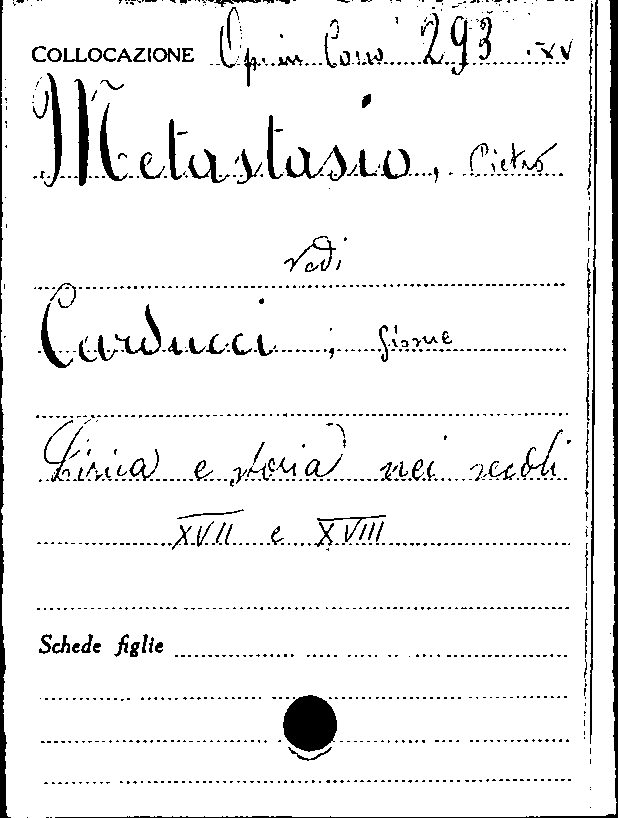 COLLOCAZIONE Op. in Cono 293 . XV
Metastasio, Pietro
vedi
Carducci, Giosue
Lirica e storia nei secoli
XVII e XVIII
Schede figlie